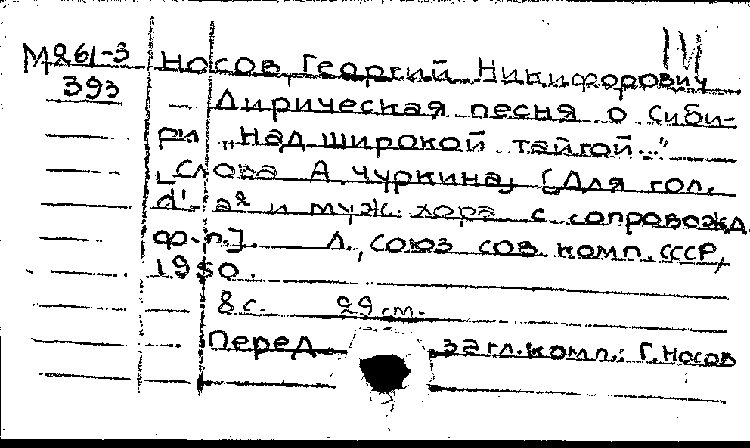 М261-3 Носов, Георгий Никифорович
393 — Лирическая песня о Сиби-
ри „Над широкой тайгой..."
[Слова А. Чуркина] [Для гол.
d'-a² и муж. хора с сопровожд.
ф-п.]. Л., Союз сов. комп. СССР,
1950.
8 с. 29 см.
Перед загл. комп.: Г. Носов